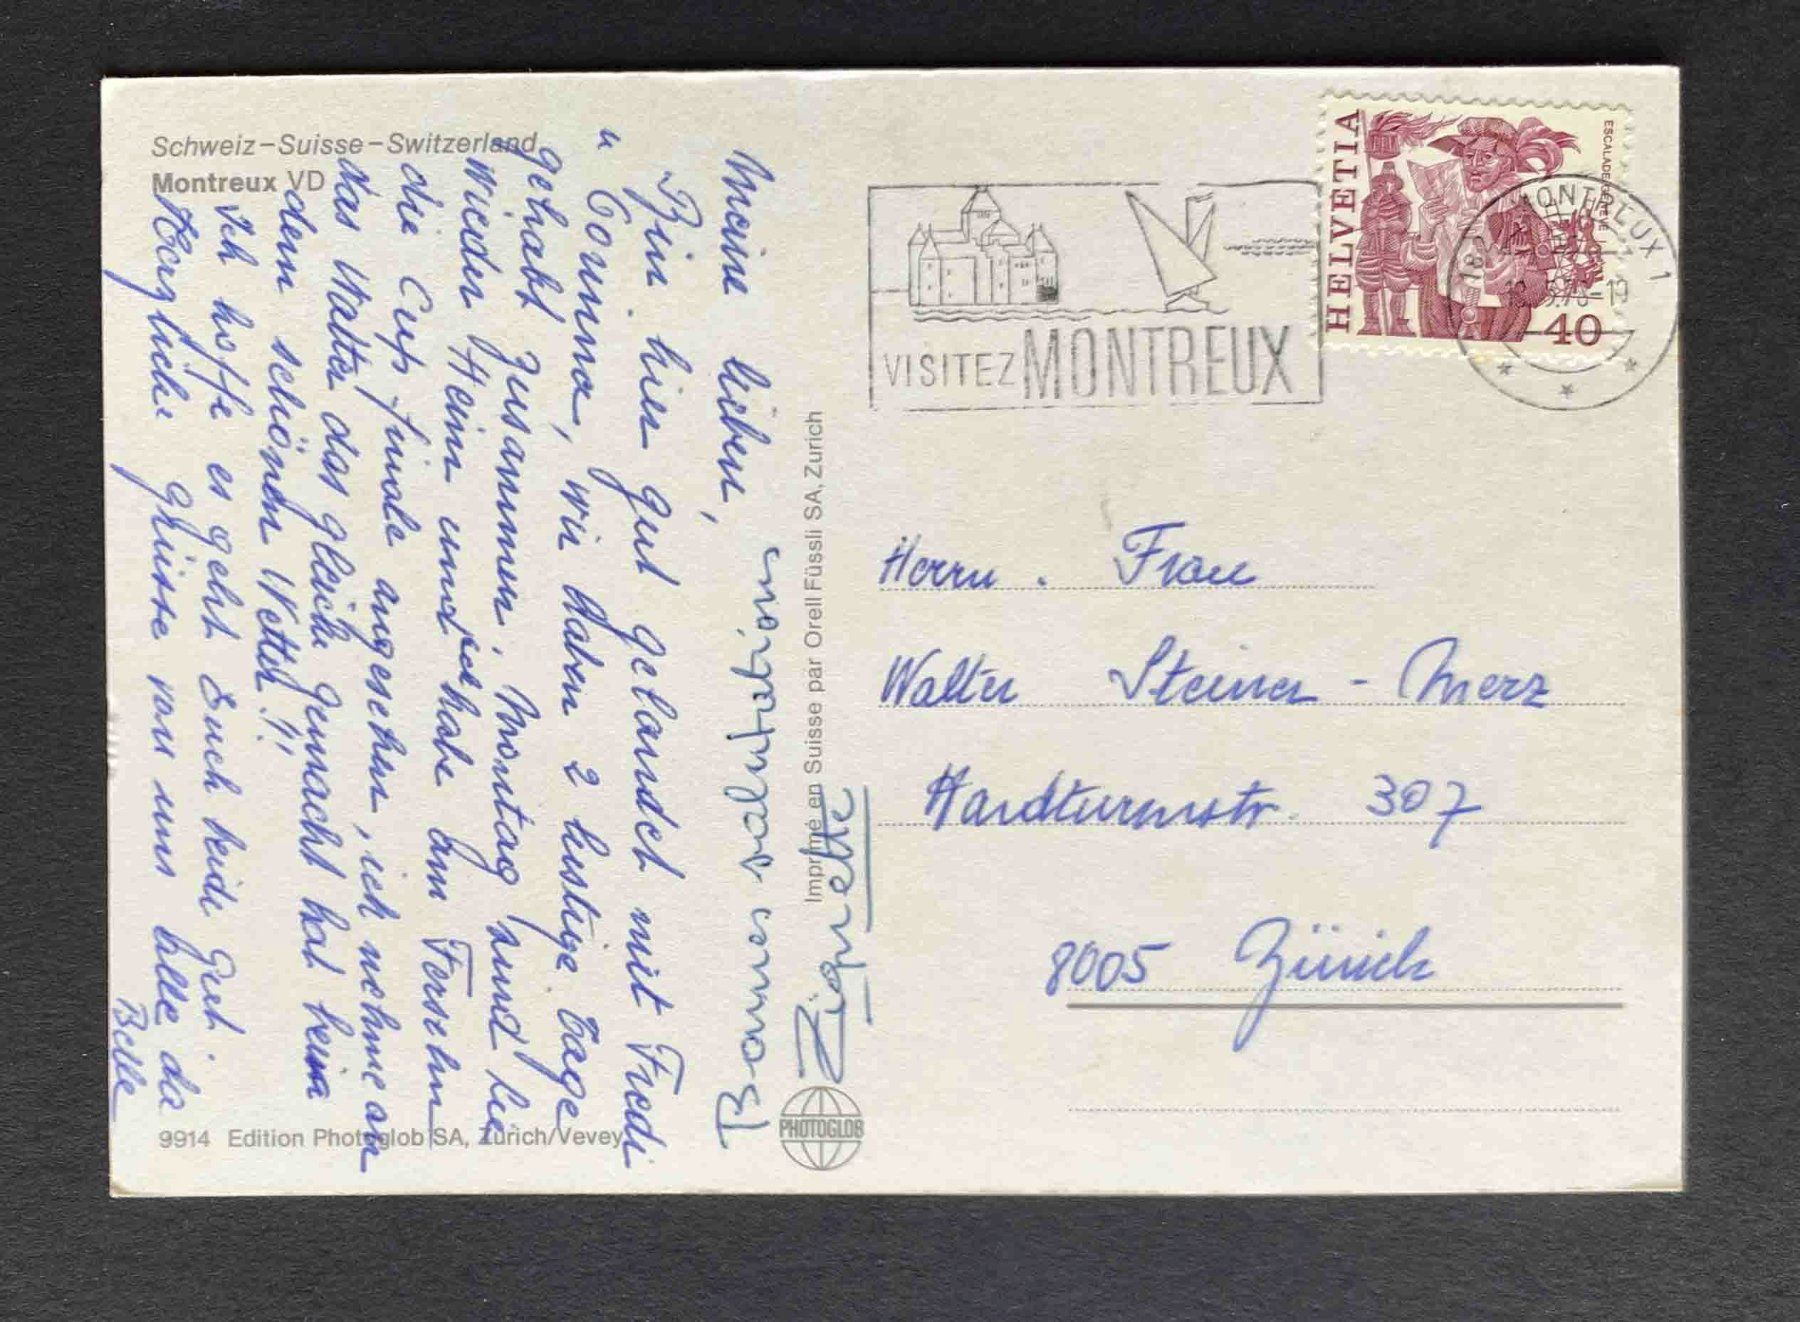 Schweiz–Suisse–Switzerland
Montreux VD
Meine lieben,
Bin hier gut gelandet mit Fredi
u Corinna, wir haben 2 lustige Tage
gehabt zusammen, Montag sind sie
wieder Heim und ich habe am Fersehn
die Cup finale angesehen, ich nehme an
das Walter das gleiche gemacht hat beim
dem schönen Wetter!!
Ich hoffe es geht Euch beide gut.
Herzliche Grüsse von uns alle da
Belle
Bonnes salutations
Zignette
9914 Edition Photoglob SA, Zürich/Vevey
Imprimé en Suisse par Orell Füssli SA, Zurich
PHOTOGLOB
VISITEZ MONTREUX
HELVETIA
ESCALADE GENÈVE
40
MONTREUX 1
Herrn . Frau
Walter Steiner - Merz
Hardturmstr. 307
8005 Zürich